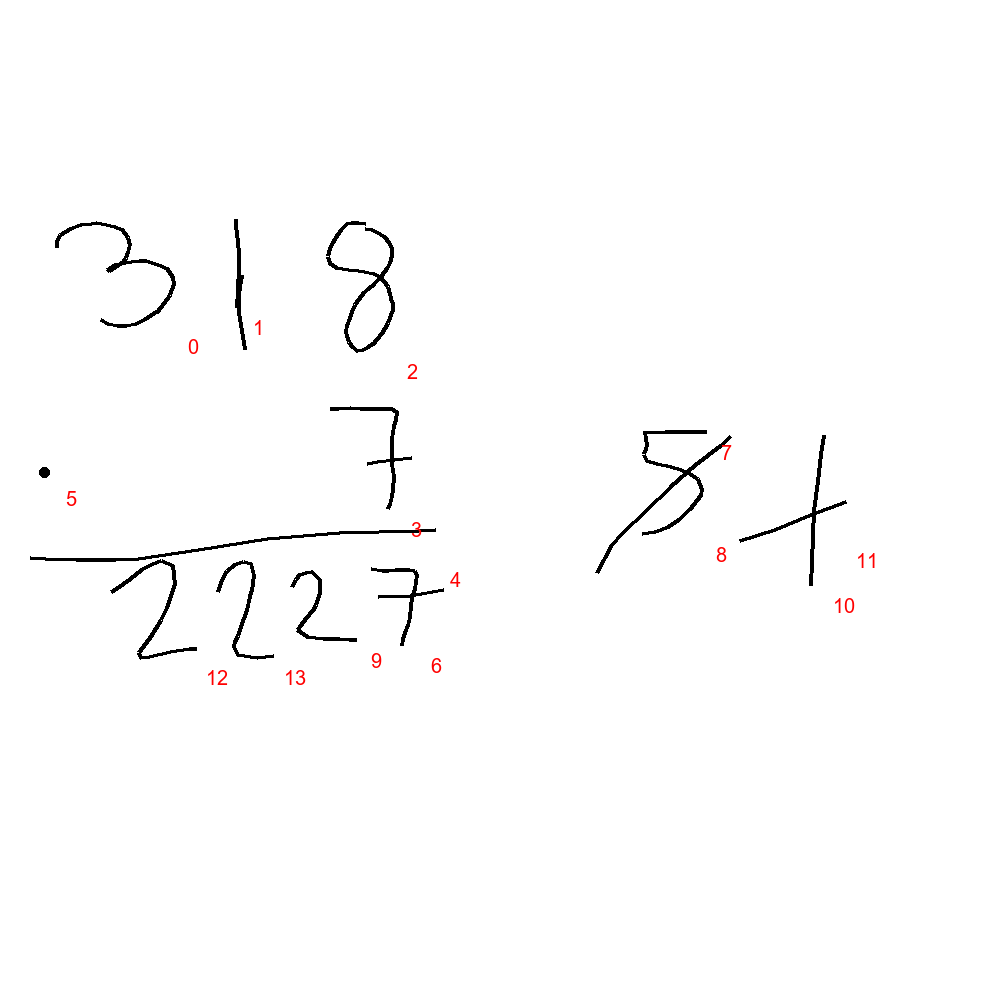 318
0 1 2
· 7
5 3 4
2227
12 13 9 6
5 1
7 8 11 10